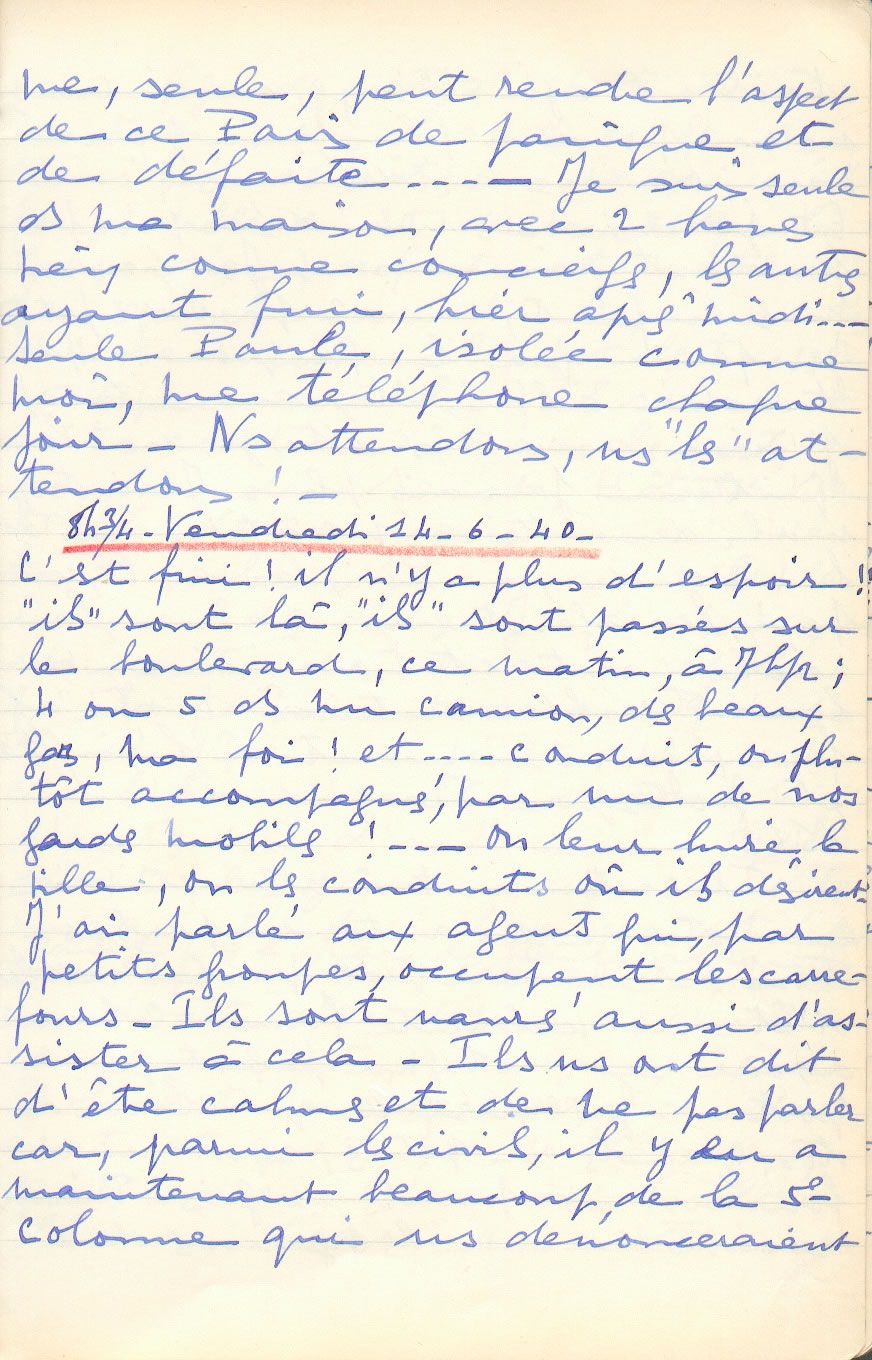 me, seule, peut rendre l'aspect
de ce Paris de panique et
de défaite ---- Je suis seule
ds ma maison, avec 2 braves
comme concierges, les autres
ayant fui, hier aprs midi...
seule Paule, isolée comme
moi, me téléphone chaque
jour - Ns attendons, ns "les" at-
tendons ! -
8h 3/4 - Vendredi 14 - 6 - 40 -
C'est fini ! il n'y a plus d'espoir !
"ils" sont là, "ils" sont passés sur
le boulevard, ce matin, à 7h 1/2 ;
4 ou 5 ds un camion, de beaux
gas, ma foi ! et ---- conduits, ou plu-
tôt accompagnés, par un de nos
gardes mobiles ! --- On leur livre la
ville, on les conduits où ils désirent -
J'ai parlé aux agents qui, par
petits groupes, occupent les carre-
fours - Ils sont navrés aussi d'as-
sister à cela - Ils ns ont dit
d'être calmes et de ne pas parler
car, parmi les civils, il y en a
maintenant beaucoup de la 5e
colonne qui ns dénonceraient